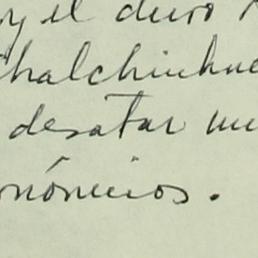 y el duro
Chalchihue
desatar un
onómicos.